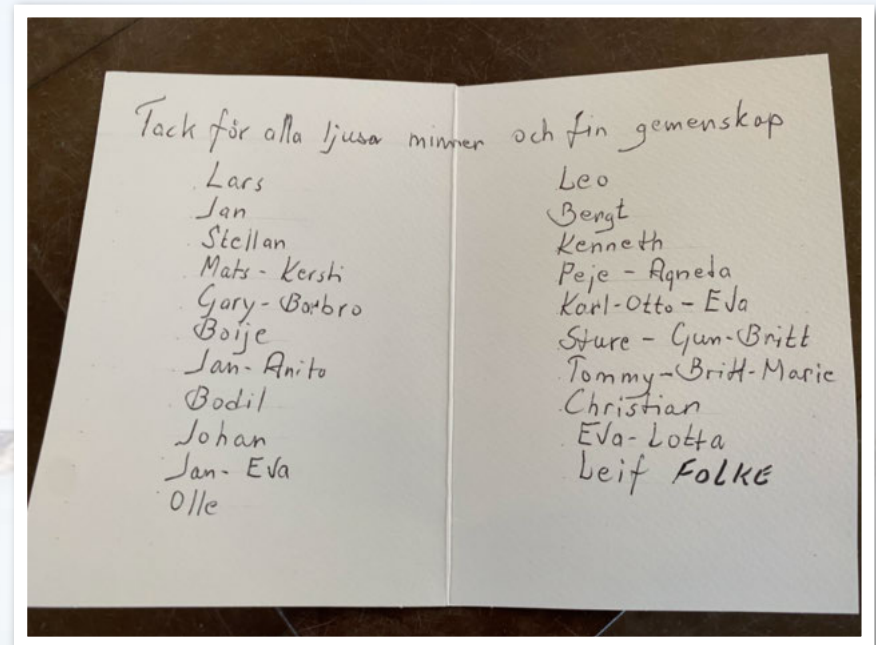 Tack för alla ljusa minner och fin gemenskap
Lars
Jan
Stellan
Mats - Kersti
Gary - Barbro
Boije
Jan-Anita
Bodil
Johan
Jan- Eva
Olle
Leo
Bengt
Kenneth
Peje - Agneta
Karl-Otto - Eva
Sture - Gun-Britt
Tommy-Britt-Marie
Christian
Eva-Lotta
Leif FOLKE